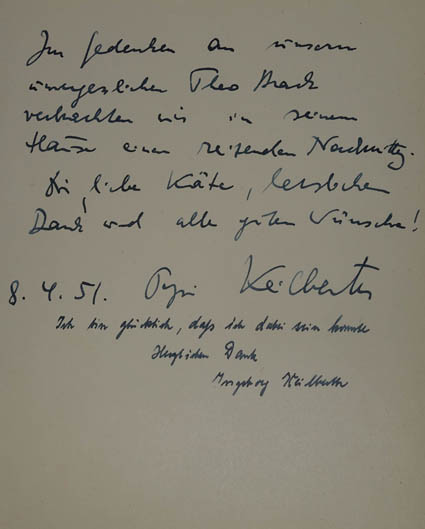 Im Gedenken an unsern
unvergesslichen Theo Brack
verbrachten wir in seinem
Hause einen reizenden Nachmittag.
Dir, liebe Käte, herzlichen
Dank und alle guten Wünsche!
8. 4. 51. Keilberth
Ich bin glücklich, daß ich dabei sein konnte
Herzlichen Dank
Ingeborg Keilberth